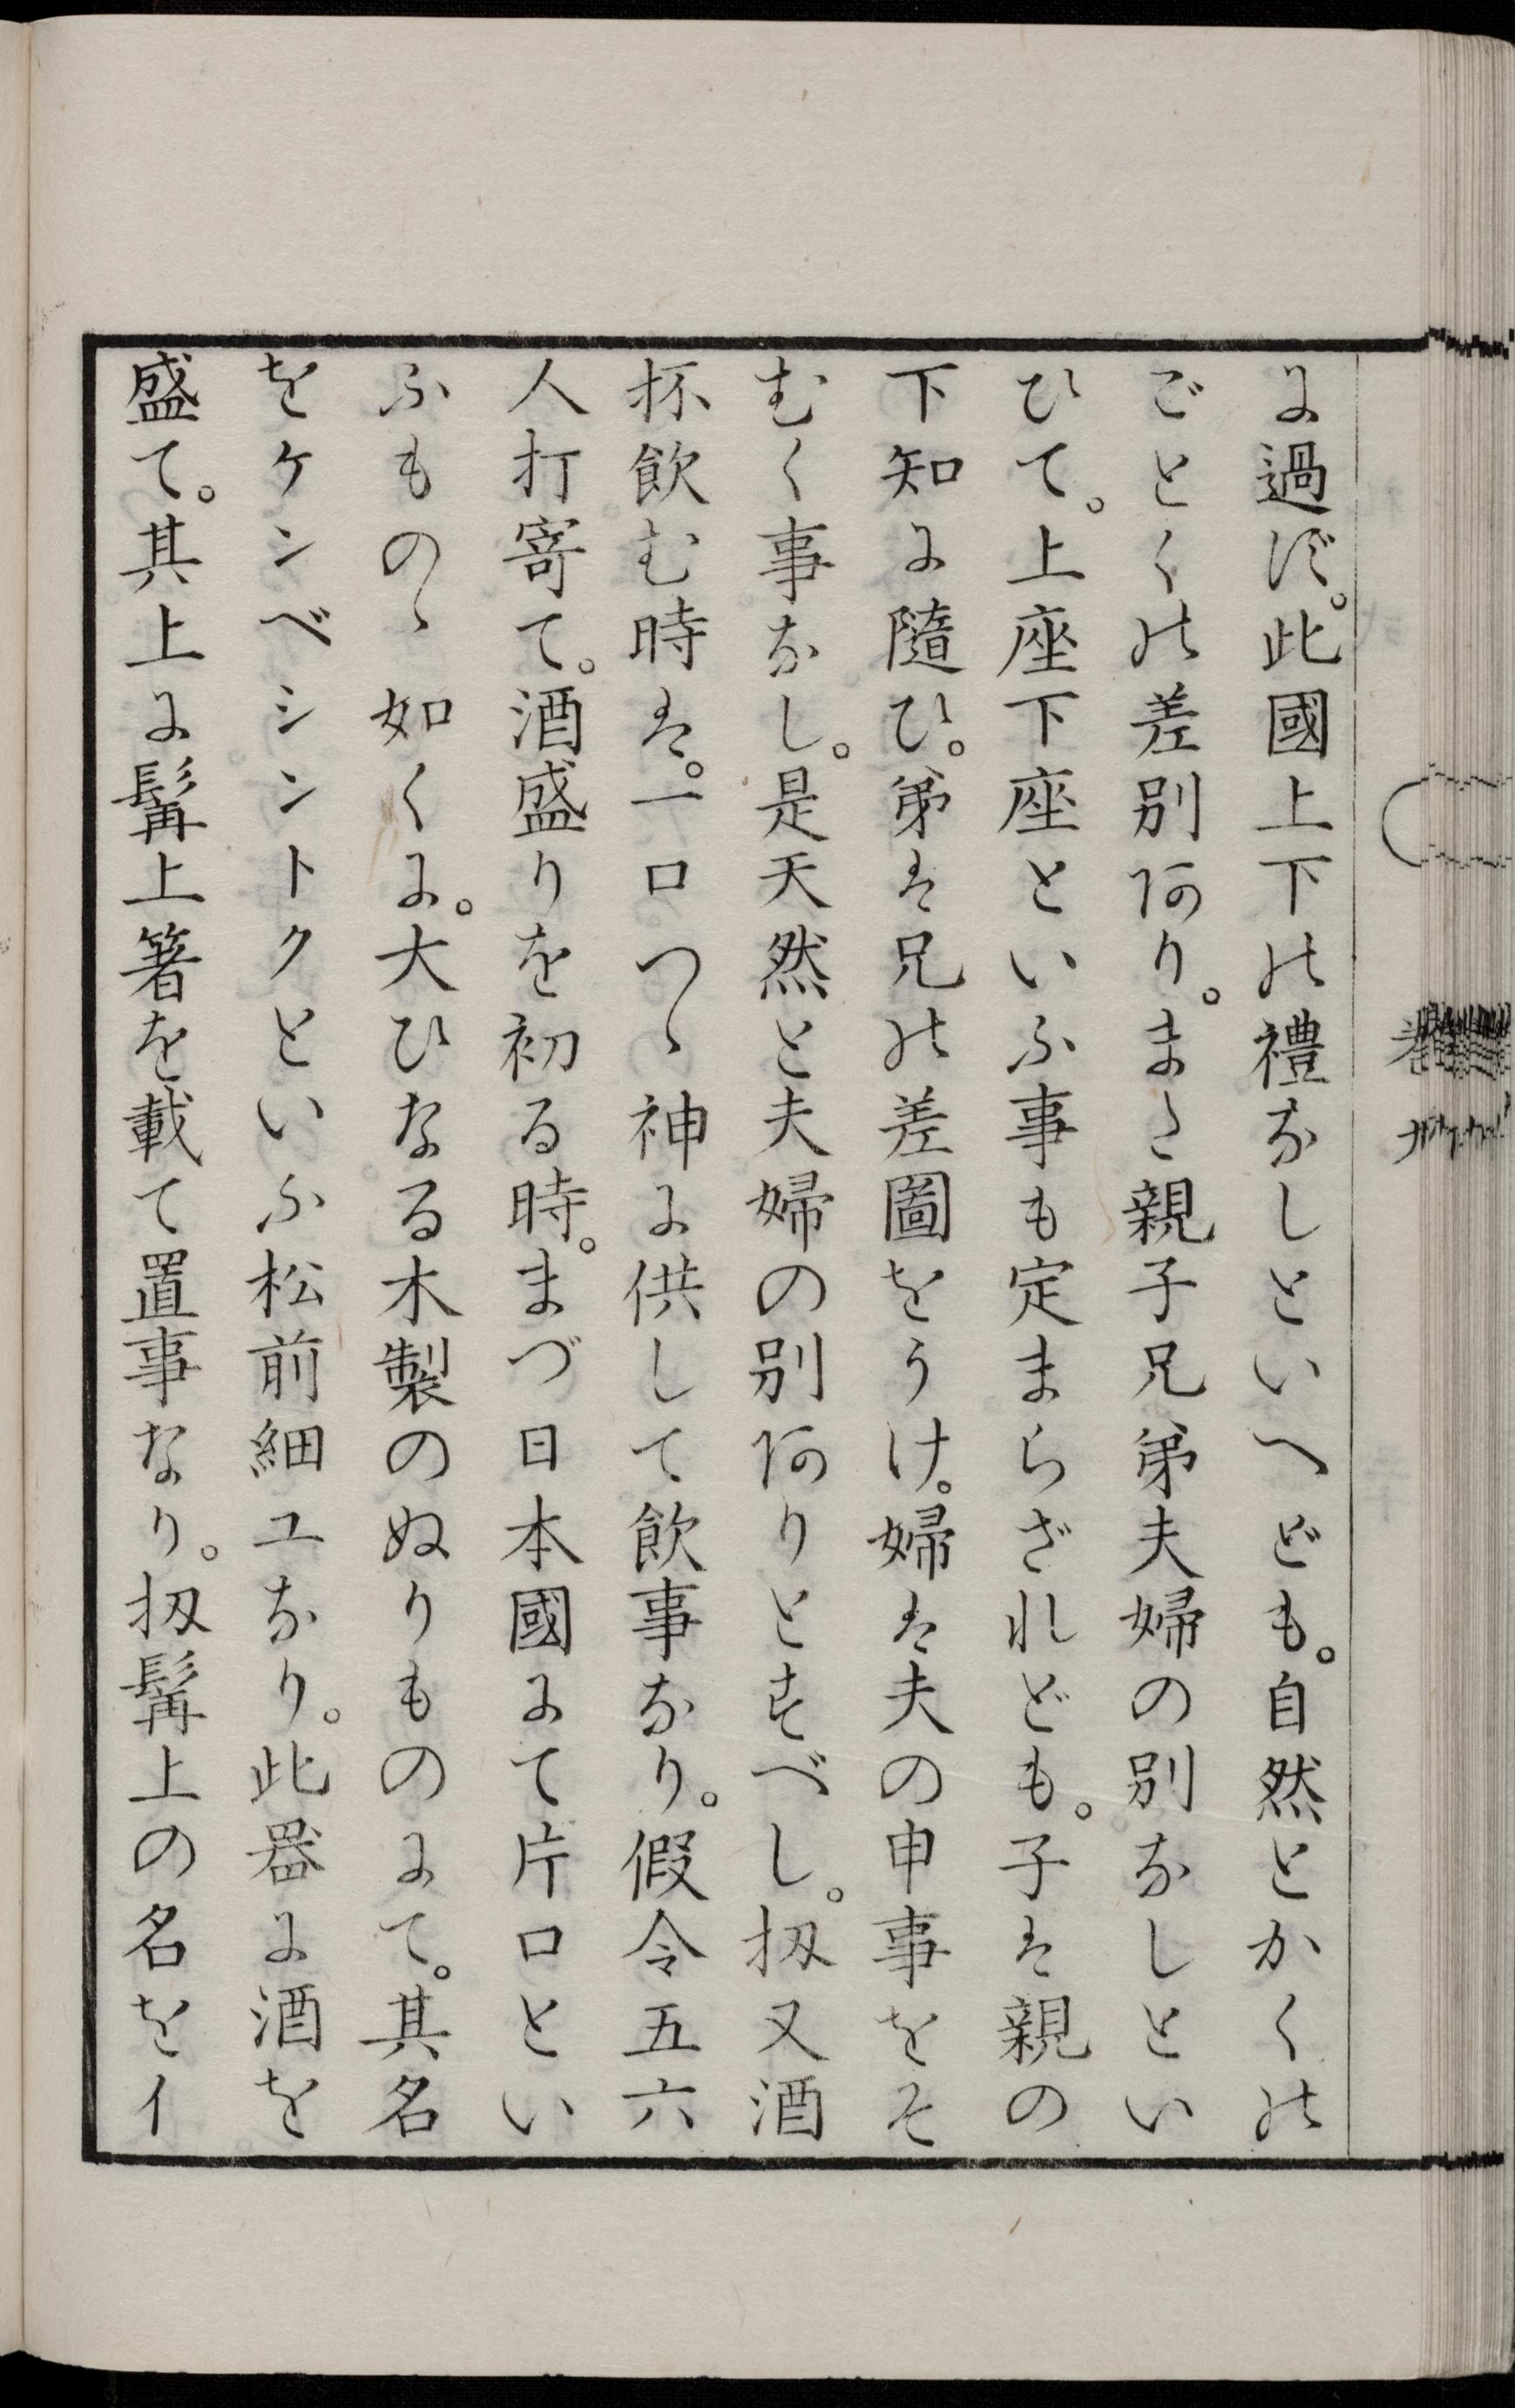 に過ず。此國上下の禮なしといへども。自然とかくの
ごとくの差別あり。また親子兄弟夫婦の別なしとい
ひて。上座下座といふ事も定まらざれども。子は親の
下知に隨ひ。弟は兄の差圖をうけ。婦は夫の申事をそ
むく事なし。是天然と夫婦の別ありとすべし。扨又酒
杯飮む時は。一口つゝ神に供して飮事なり。假令五六
人打寄て。酒盛りを初る時。まづ日本國にて片口とい
ふものゝ如くに。大ひなる木製のぬりものにて。其名
をケンベシントクといふ松前細工なり。此器に酒を
盛て。其上に髯上箸を載て置事なり。扨髯上の名をイ